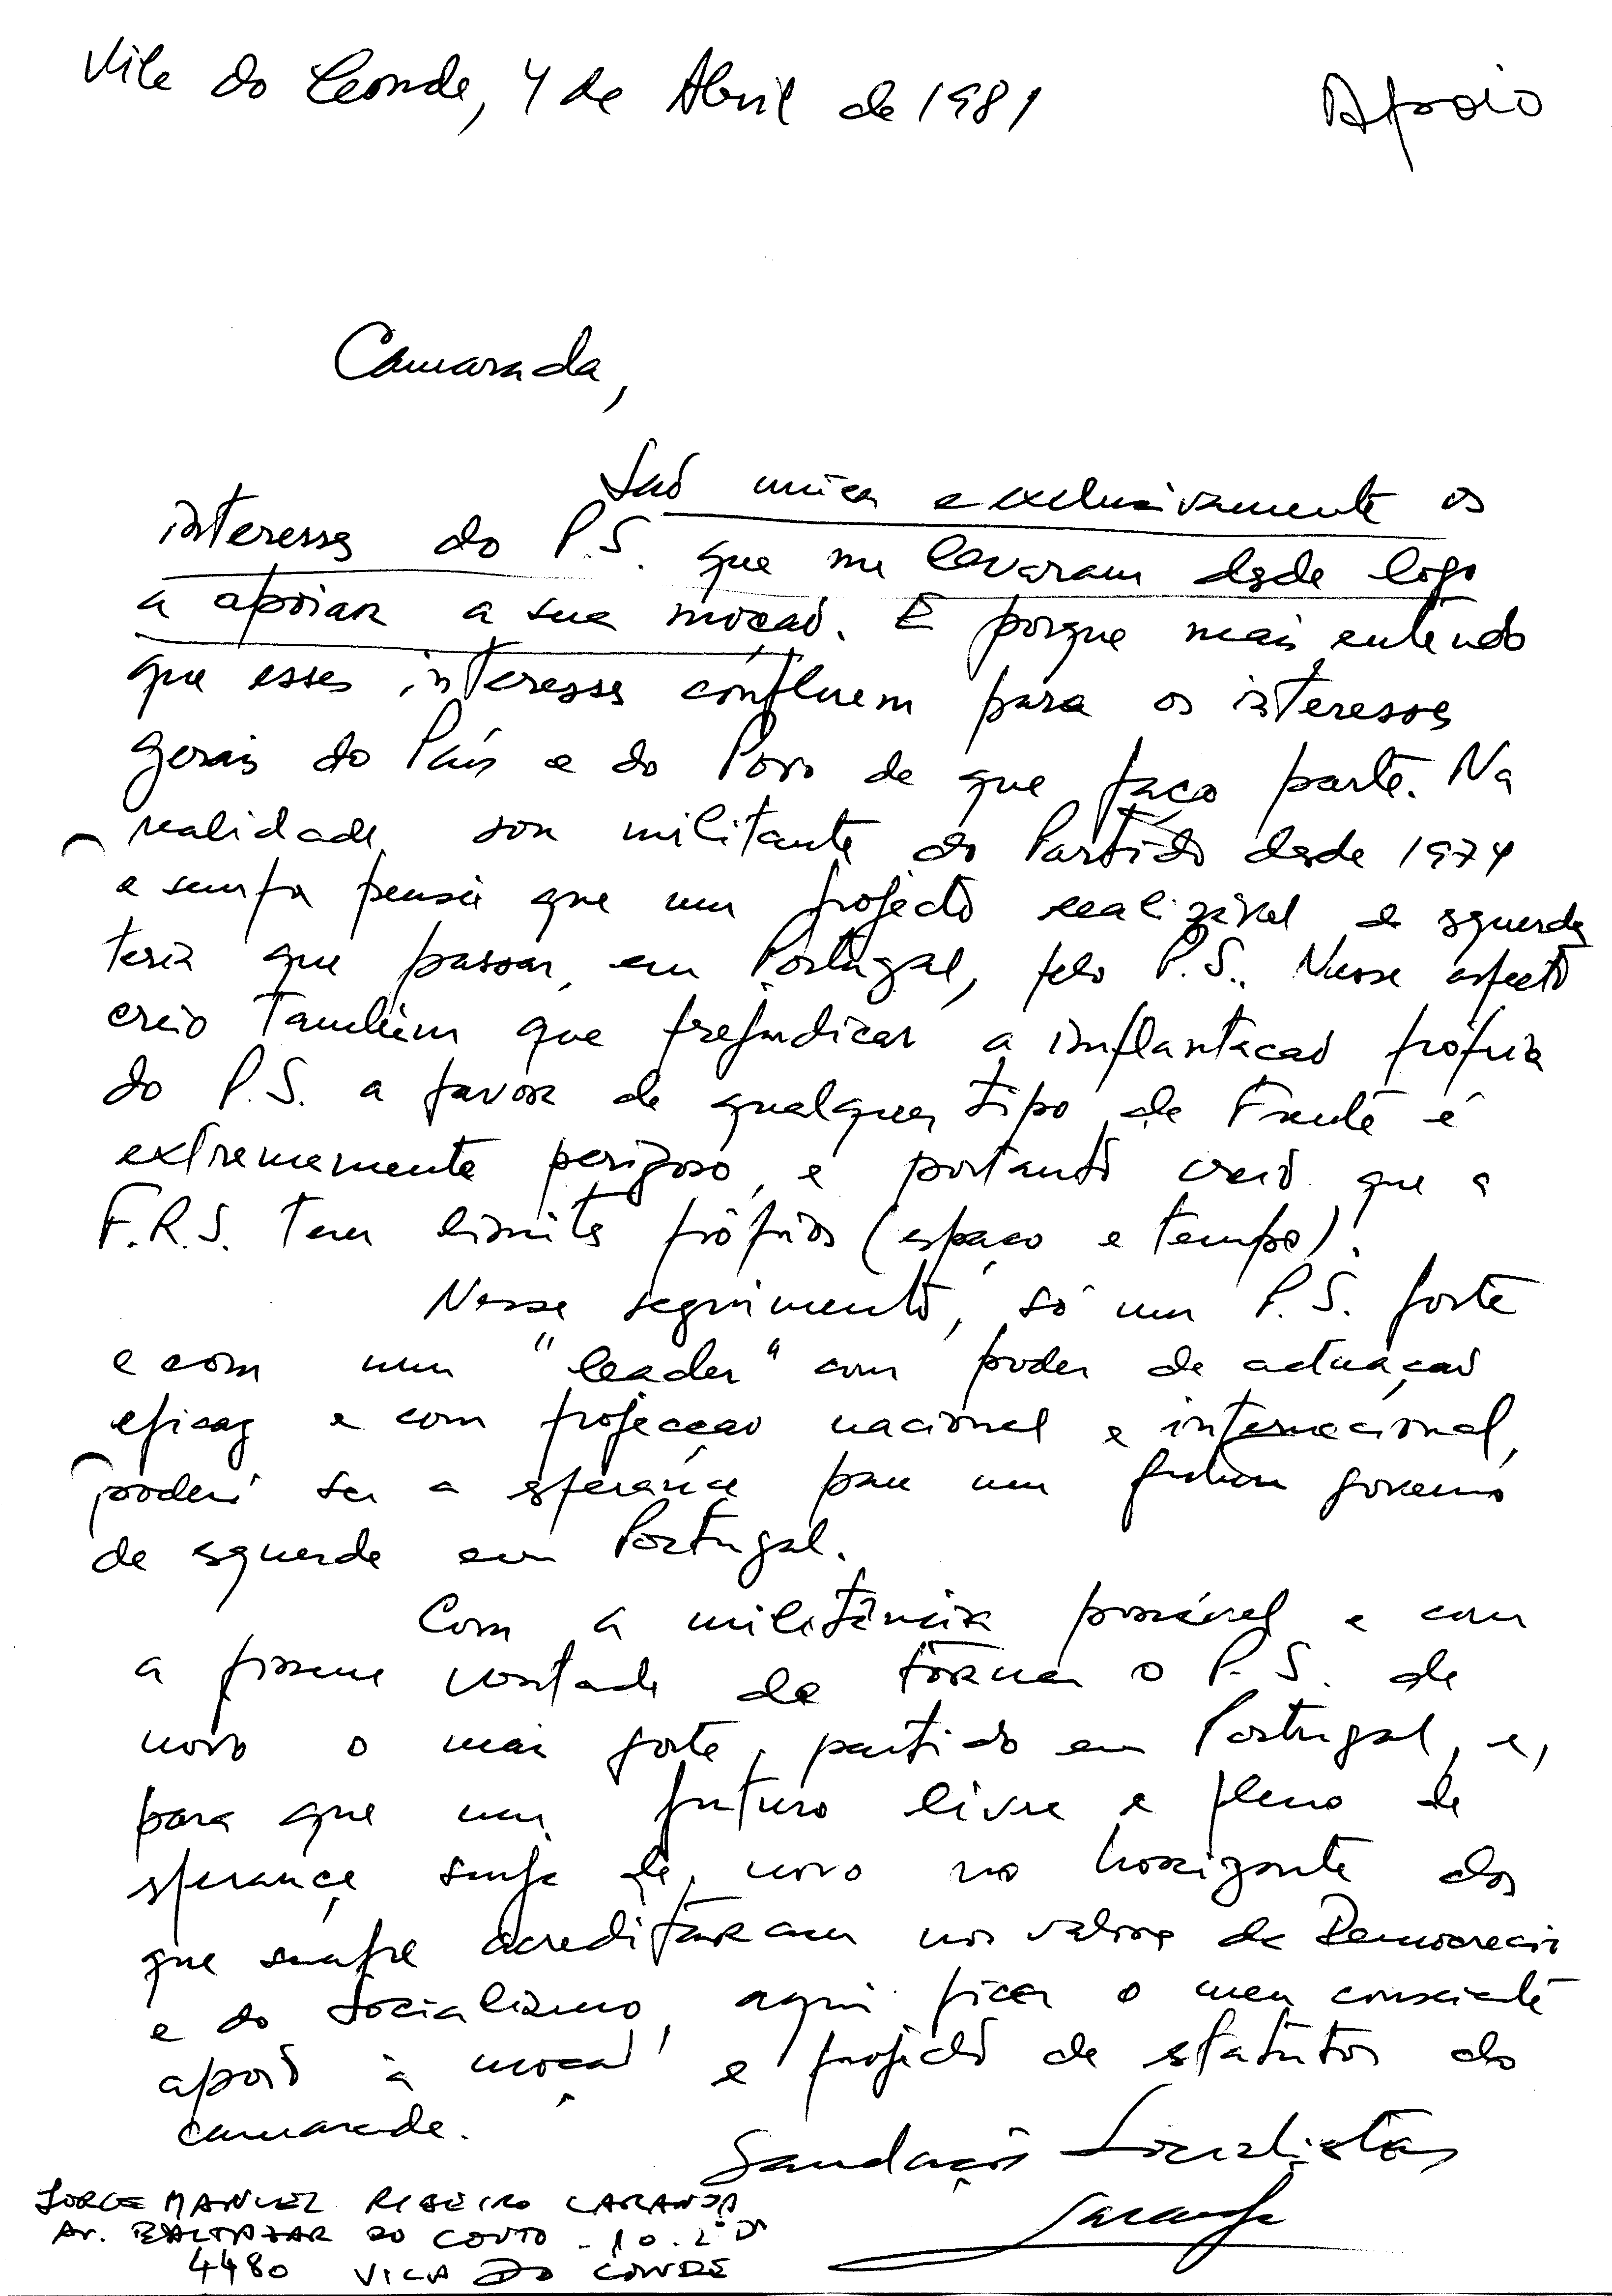 Vila do Conde, 4 de Abril de 1981
Apoio
Camarada,
São única e exclusivamente os
interesses do P.S. que me levaram desde logo
a apoiar a sua moção. E porque mais entendo
que esses interesses confluem para os interesses
gerais do País e do Povo de que faço parte. Na
realidade, sou militante do Partido desde 1974
e sempre pensei que um projecto realizável de esquerda
teria que passar, em Portugal, pelo P.S.. Nesse aspecto
creio também que prejudicar a implantação própria
do P.S. a favor de qualquer tipo de Frente é
extremamente perigoso, e portanto creio que a
F.R.S. tem limites próprios (espaço e tempo).
Nesse seguimento, só um P.S. forte
e com um "leader" com poder de actuação
eficaz e com projecção nacional e internacional,
poderá ser a esperança para um futuro governo
de esquerda em Portugal.
Com a militância possível e com
a firme vontade de tornar o P.S. de
novo o mais forte partido em Portugal, e,
para que um futuro livre e pleno de
esperança surja de novo no horizonte dos
que sempre acreditaram nos valores da Democracia
e do Socialismo, aqui fica o meu consciente
apoio à moção e projecto de estatutos do
camarada.
Saudações Socialistas
Laranja
JORGE MANUEL RIBEIRO LARANJA
Av. BALTAZAR DO COUTO - 10. 2º Dº
4480 VILA DO CONDE